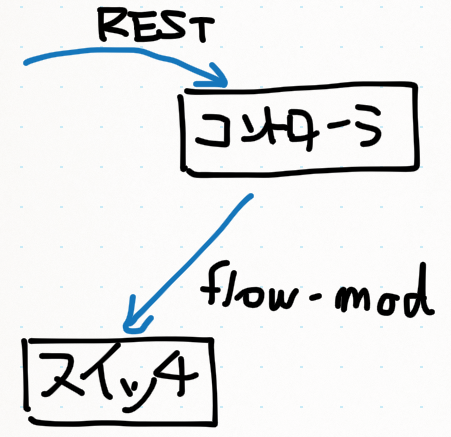 REST
コントローラ
flow-mod
スイッチ